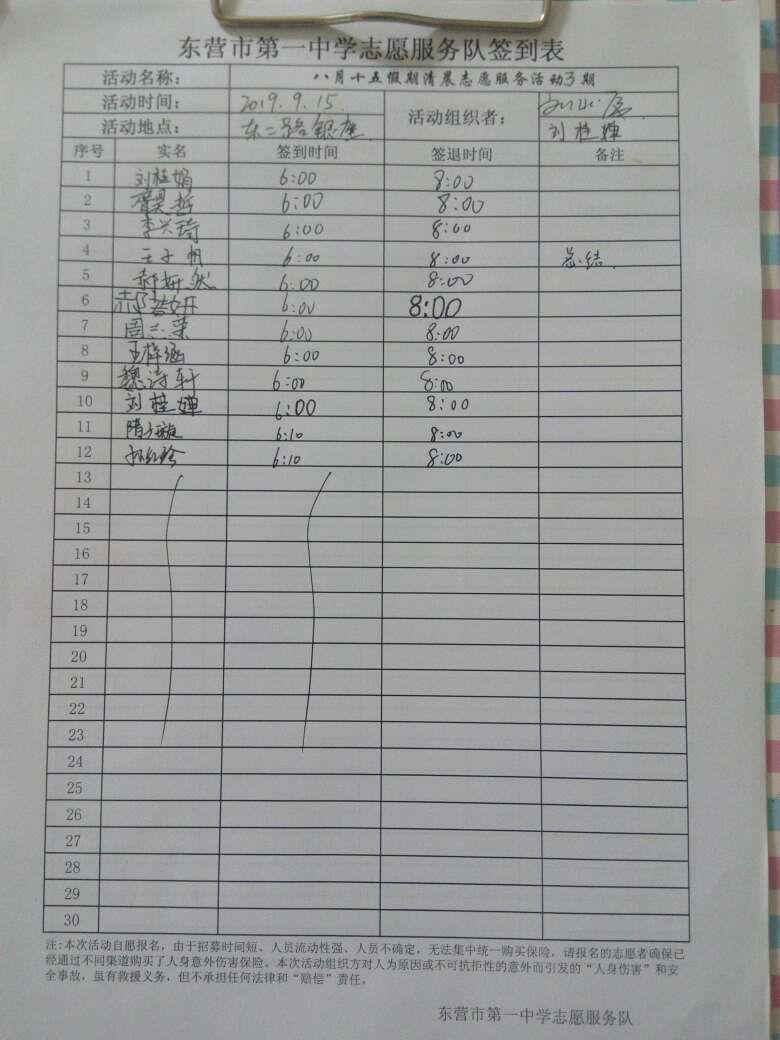 东营市第一中学志愿服务队签到表
活动名称: 八月十五假期清晨志愿服务活动3期
活动时间: 2019.9.15. 活动组织者:
活动地点: 东二路银座 刘桂婵
序号 实名 签到时间 签退时间 备注
1 刘桂娟 6:00 8:00
2 胥昊哲 6:00 8:00
3 李兴琦 6:00 8:00
4 王子帆 6:00 8:00 总结
5 郝妍然 6:00 8:00
6 6:00 8:00
7 周三荣 6:00 8:00
8 王梓涵 6:00 8:00
9 魏诗轩 6:00 8:00
10 刘桂婵 6:00 8:00
11 6:10 8:00
12 6:10 8:00
13
14
15
16
17
18
19
20
21
22
23
24
25
26
27
28
29
30
注:本次活动自愿报名，由于招募时间短、人员流动性强、人员不确定，无法集中统一购买保险，请报名的志愿者确保已
经通过不同渠道购买了人身意外伤害保险。本次活动组织方对人为原因或不可抗拒性的意外而引发的“人身伤害”和安
全事故，虽有救援义务，但不承担任何法律和“赔偿”责任。
东营市第一中学志愿服务队